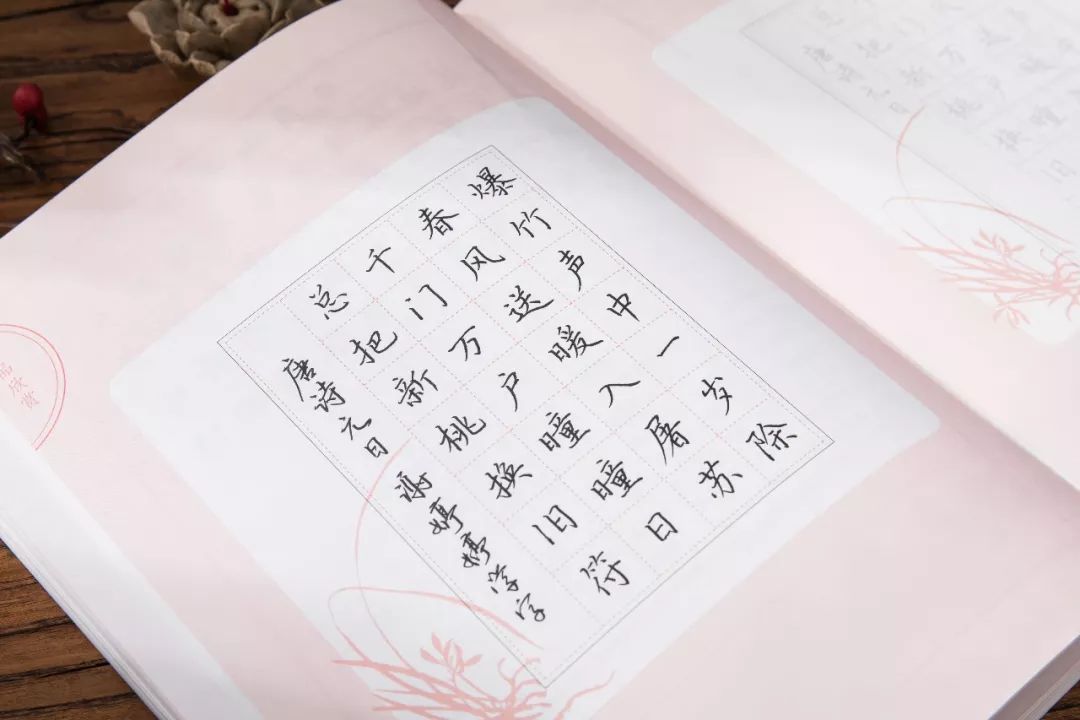 爆竹声中一岁除
春风送暖入屠苏
千门万户曈曈日
总把新桃换旧符
唐诗元日
谢婷婷学字
品欣赏